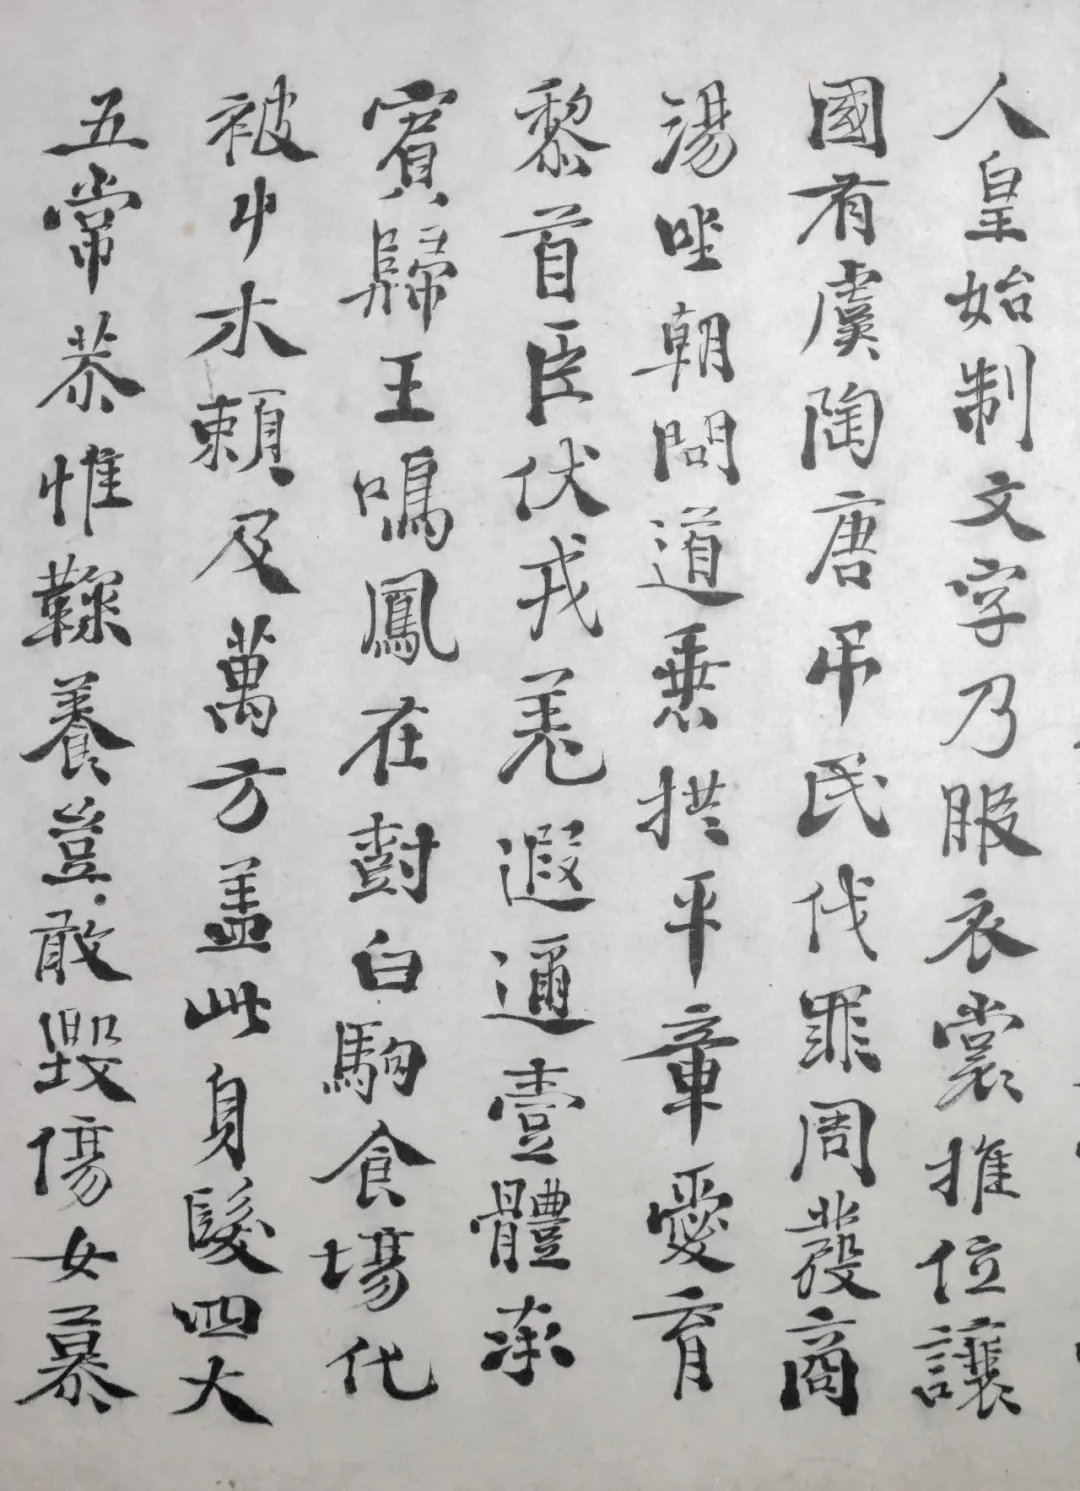 人皇始制文字乃服衣裳推位讓
國有虞陶唐吊民伐罪周發商
湯唑朝問道垂拱平章愛育
黎首臣伏戎羌遐邇壹體率
賓歸王鳴鳳在樹白駒食場化
被草木賴及萬方蓋此身髮四大
五常恭惟鞠養豈敢毀傷女慕